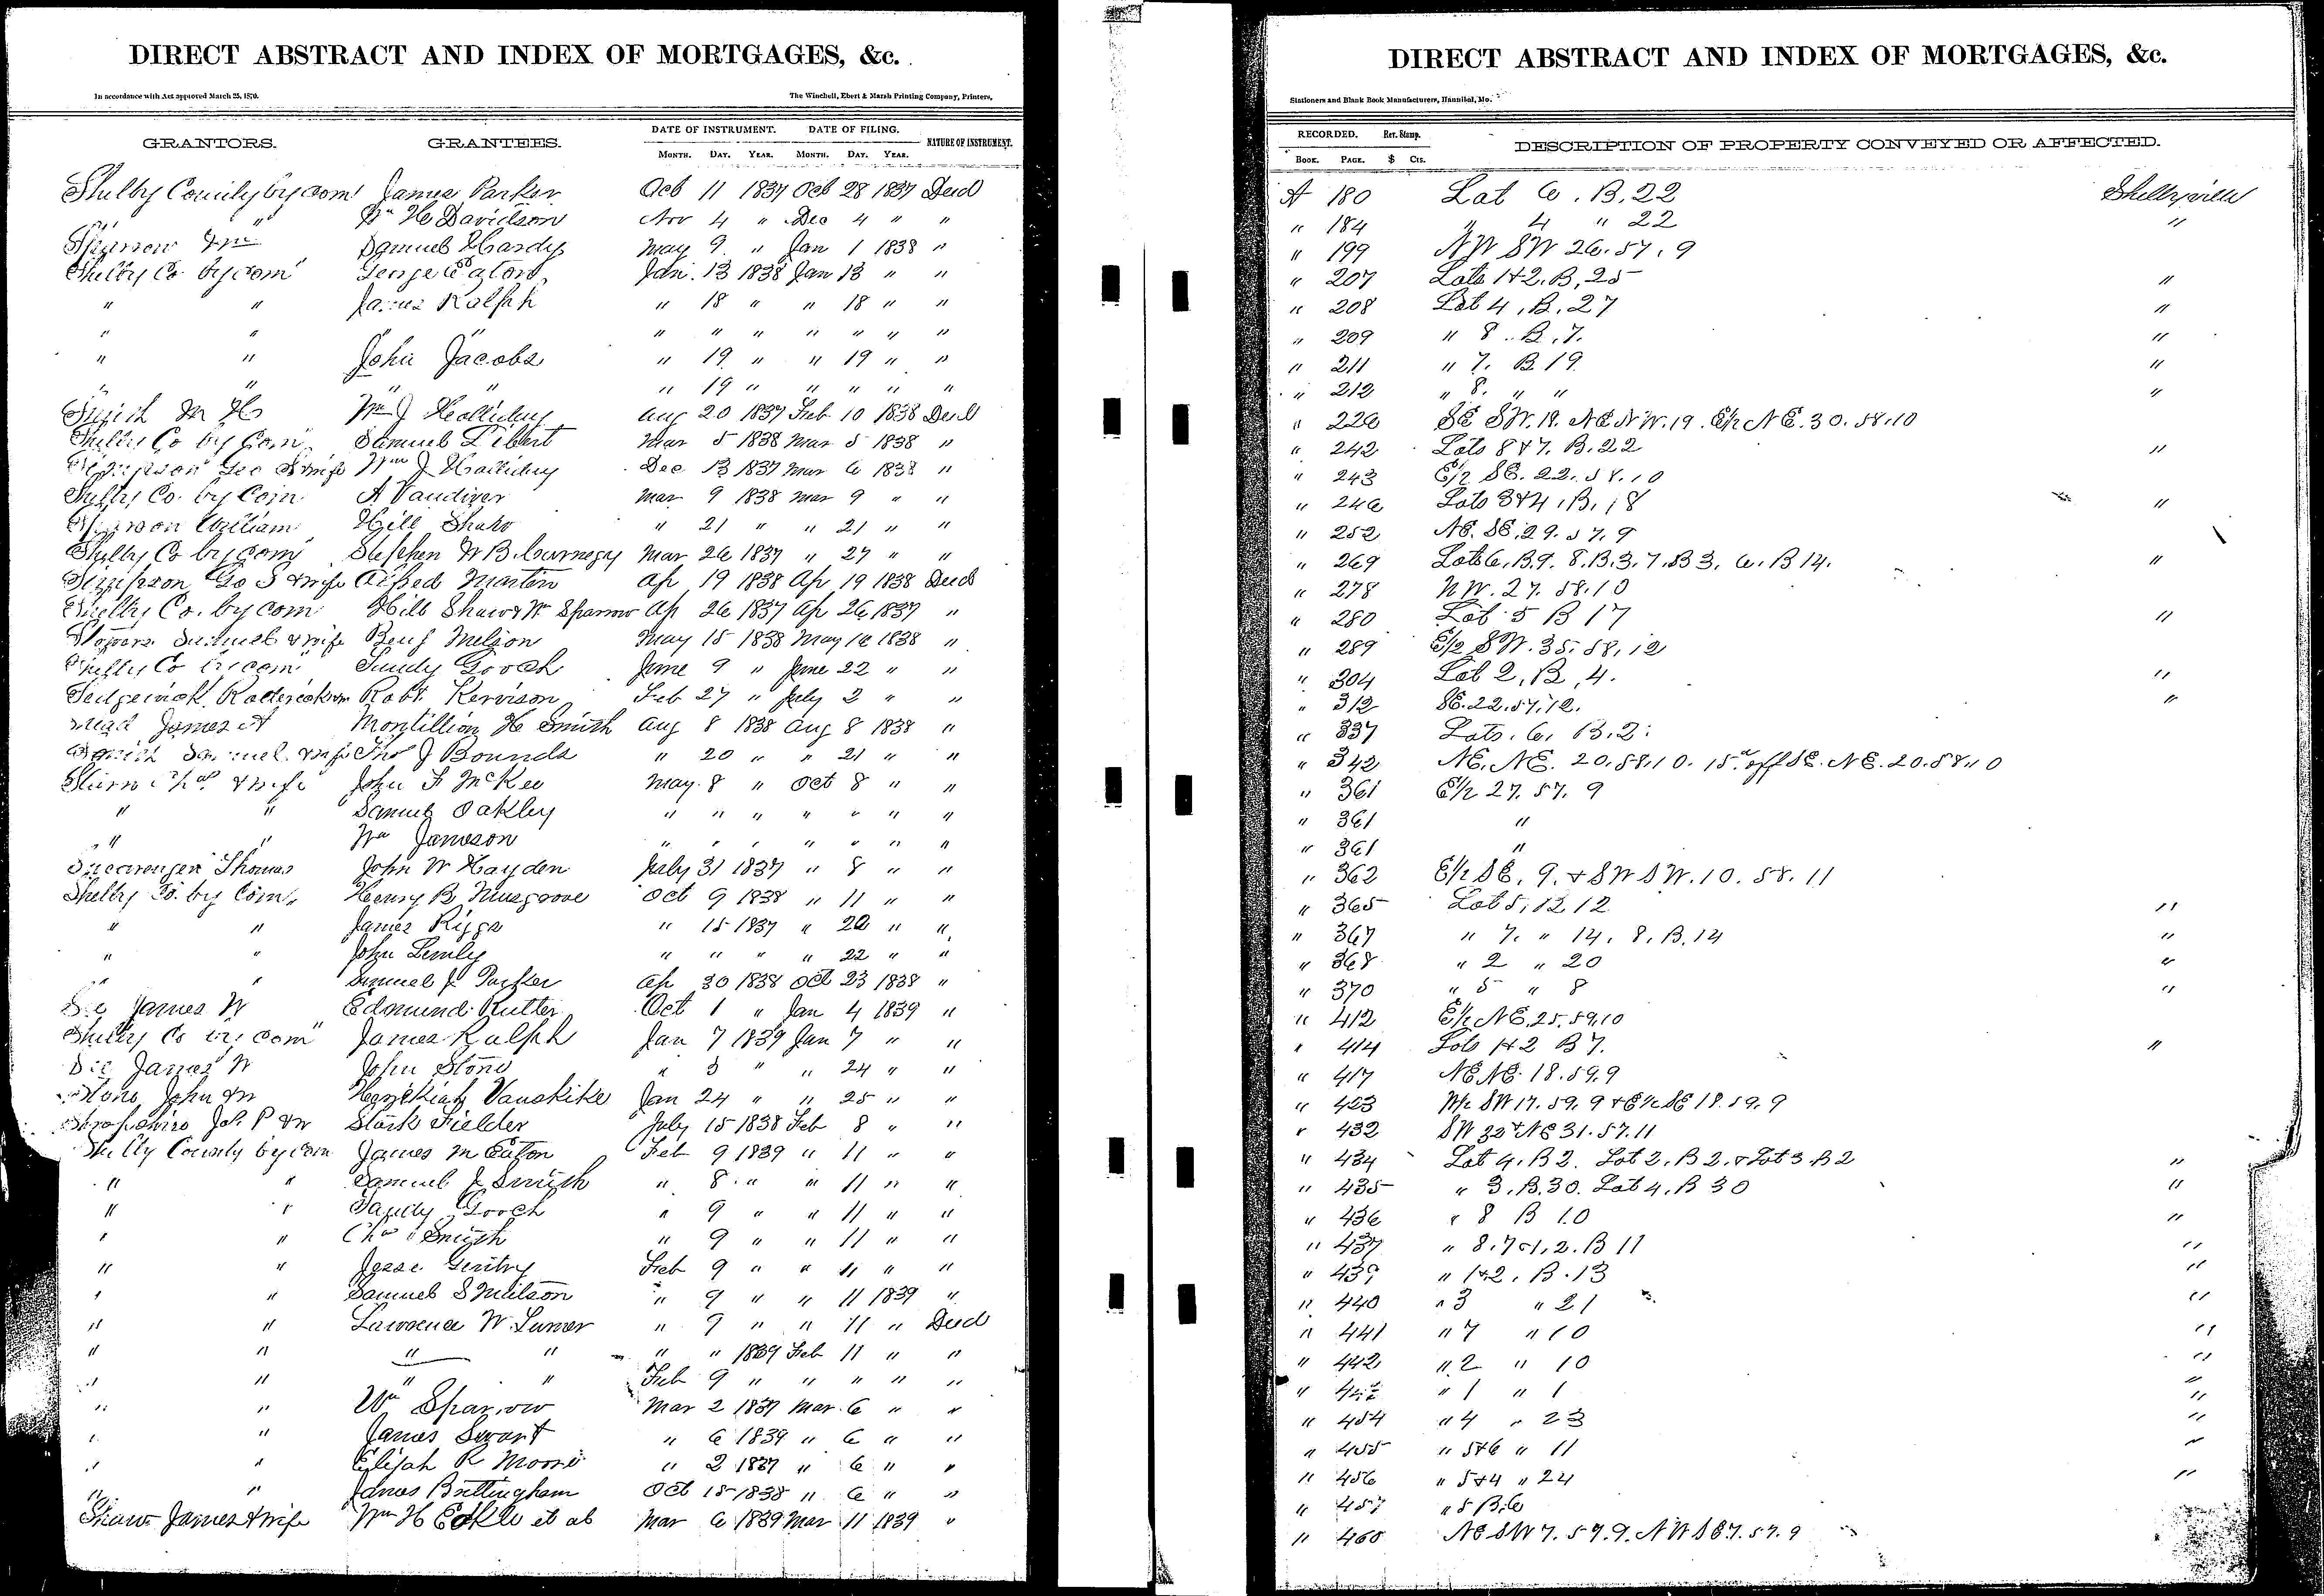 DIRECT ABSTRACT AND INDEX OF MORTGAGES, &c.
In accordance with Act approved March 25, 1870.
The Winchell, Ebert & Marsh Printing Company, Printers,
GRANTORS. GRANTEES. DATE OF INSTRUMENT. DATE OF FILING. NATURE OF INSTRUMENT.
MONTH. DAY. YEAR. MONTH. DAY. YEAR.
Shelby County by com James Parker Oct 11 1837 Oct 28 1837 Deed
" " Wm H Davidson Nov 4 " Dec 4 " "
Samuel Hardy May 9 " Jan 1 1838 "
Shelby Co by com George Eaton Jan. 13 1838 Jan 13 " "
" " James Ralph " 18 " " 18 " "
" " " " " " " " " "
" " John Jacobs " 19 " " 19 " "
" " " " " 19 " " " " "
M H Wm J Holliday Aug 20 1837 Feb 10 1838 Deed
Shelby Co by Com Samuel Libert Mar 5 1838 Mar 5 1838 "
Geo S wife Wm J Holliday Dec 13 1837 Mar 6 1838 "
Shelby Co. by Com A Vandiver Mar 9 1838 Mar 9 " "
William Hill Shaw " 21 " " 21 " "
Shelby Co by com Stephen W B Carnegy Mar 26 1837 " 27 " "
Simpson Geo S & wife Alfred Marton Ap 19 1838 Ap 19 1838 Deed
Shelby Co. by com Hill Shaw & Wm Sparrow Ap 26 1837 Ap 26 1837 "
Samuel & wife Benj Melson May 15 1838 May 16 1838 "
Shelby Co by com Sandy Gooch June 9 " June 22 " "
Robt Kervison Feb 27 " July 2 " "
James A Montillion H Smith Aug 8 1838 Aug 8 1838 "
Samuel & wife Tho J Bounds " 20 " " 21 " "
& wife John F McKee May 8 " Oct 8 " "
" " Samuel Oakley " " " " " " "
" " Wm Jameson " " " " " " "
Thomas John W Hayden July 31 1837 " 8 " "
Shelby Co. by Com. Henry B Musgrove Oct 9 1838 " 11 " "
" " James Riggs " 15 1837 " 20 " "
" " John Lemly " " " " 22 " "
" " Samuel J Parker Ap 30 1838 Oct 23 1838 "
James W Edmund Rutter Oct 1 " Jan 4 1839 "
Shelby Co by com James Ralph Jan 7 1839 Jan 7 " "
James W John Stone " 3 " " 24 " "
Stone John & w Hezekiah Vanskike Jan 24 " " 25 " "
Shropshire Jo. P & w Stark Fielder July 15 1838 Feb 8 " "
Shelby County by com James M Eaton Feb 9 1839 " 11 " "
" " Samuel J Smith " 8 " " 11 " "
" " Sandy Gooch " 9 " " 11 " "
" " Smith " 9 " " 11 " "
" " Jesse Gentry Feb 9 " " 11 " "
" " Samuel S Matson " 9 " " 11 1839 "
" " Lawrence W Turner " 9 " " 11 " Deed
" " " " " " 1839 Feb 11 " "
" " " " Feb 9 " " " " "
" " Wm Sparrow Mar 2 1837 Mar 6 " "
" " James Swart " 6 1839 " 6 " "
" " Elijah R Moore " 2 1837 " 6 " "
" " James Brittingham Oct 15 1838 " 6 " "
Shaw James & wife Wm H et al Mar 6 1839 Mar 11 1839 "
DIRECT ABSTRACT AND INDEX OF MORTGAGES, &c.
Stationers and Blank Book Manufacturers, Hannibal, Mo.
RECORDED. Rev. Stamp. DESCRIPTION OF PROPERTY CONVEYED OR AFFECTED.
BOOK. PAGE. $ Cts.
A 180 Lot 6. B. 22 Shelbyville
" 184 " 4 " 22 "
" 199 NW SW 26. 57. 9
" 207 Lots 1+2. B, 25 "
" 208 Lot 4, B. 27 "
" 209 " 8. B. 7. "
" 211 " 7. B 19 "
" 212 " 8. " " "
" 226 SE SW. 18. NE NW. 19. E½ NE. 30. 58.10
" 242 Lots 8+7. B. 22 "
" 243 E½ SE. 22. 58. 10
" 246 Lots 3+4, B. 18 "
" 252 NE. SE, 29. 57. 9
" 269 Lots 6, B. 9. 8. B. 3. 7. B 3. 6. B 14. "
" 278 NW. 27. 58.10
" 280 Lot 5 B 17 "
" 289 E½ SW. 35. 58, 12
" 304 Lot 2, B, 4. "
" 312 SE. 22. 57. 12. "
" 337 Lots. 6. B. 2.
" 342 NE. NE. 20. 58.10. 15a off SE. NE. 20. 58.10
" 361 E½ 27. 57. 9
" 361 "
" 361 "
" 362 E½ SE. 9. + SW SW. 10. 58. 11
" 365 Lot 5, B 12 "
" 367 " 7. " 14. 8. B. 14 "
" 368 " 2 " 20 "
" 370 " 5 " 8 "
" 412 E½ NE. 25. 59.10
" 414 Lots 1+2 B 7. "
" 417 NE NE 18. 59. 9
" 423 W½ SW 17. 59. 9 + E½ SE 18. 59. 9
" 432 SW 32 + NE 31. 57. 11
" 434 Lot 4. B 2. Lot 2. B 2. + Lot 3. B 2 "
" 435 " 3. B. 30. Lot 4. B 30 "
" 436 " 8 B 10 "
" 437 " 8. 7 1, 2. B 11 "
" 439 " 1+2. B. 13 "
" 440 " 3 " 21 "
" 441 " 7 " 10 "
" 442 " 2 " 10 "
" " 1 " 1 "
" 454 " 4 " 23 "
" 455 " 5+6 " 11 "
" 456 " 5+4 " 24 "
" 457 " 5 B. 6
" 460 NE SW 7. 57. 9. NW SE 7. 57. 9